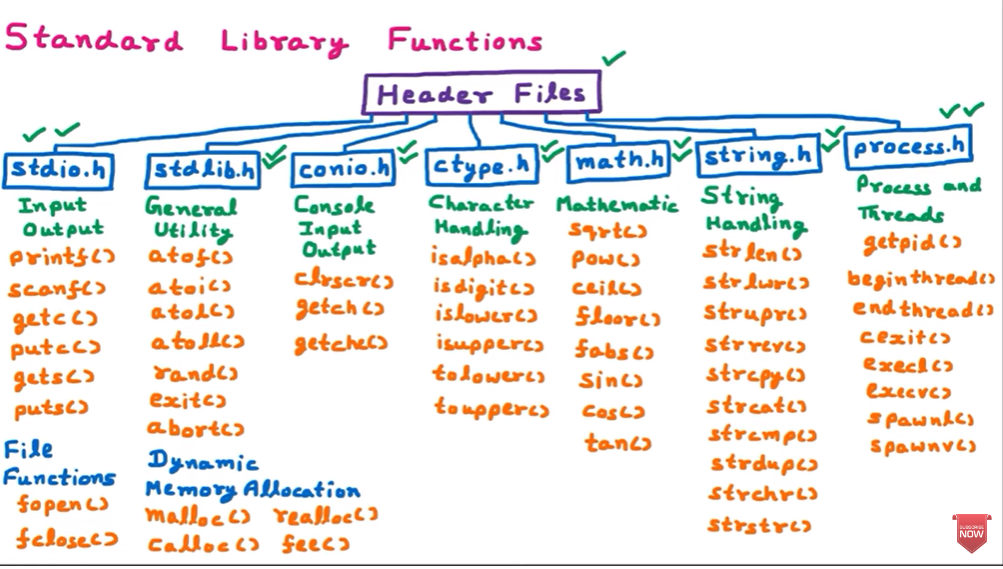 Standard Library Functions
Header Files
stdio.h
Input
Output
printf()
scanf()
getc()
putc()
gets()
puts()
File
Functions
fopen()
fclose()
stdlib.h
General
Utility
atof()
atoi()
atol()
atoll()
rand()
exit()
abort()
Dynamic
Memory Allocation
malloc() realloc()
calloc() fee()
conio.h
Console
Input
Output
clrscr()
getch()
getche()
ctype.h
Character
Handling
isalpha()
isdigit()
islower()
isupper()
tolower()
toupper()
math.h
Mathematic
sqrt()
pow()
ceil()
floor()
fabs()
sin()
cos()
tan()
string.h
String
Handling
strlen()
strlwr()
strupr()
strrev()
strcpy()
strcat()
strcmp()
strdup()
strchr()
strstr()
process.h
Process and
Threads
getpid()
beginthread()
endthread()
cexit()
execl()
execv()
spawnl()
spawnv()
SUBSCRIBE
NOW